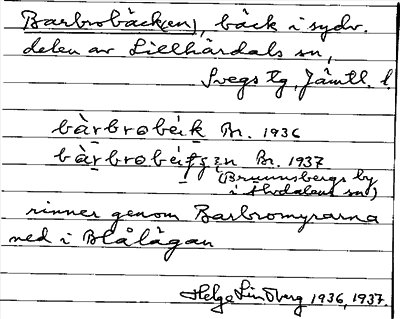 Barbrobäck(en), bäck i sydv.
delen av Lillhärdals sn,
Svegs tg, Jämtl. l.
bàrbrobeik Br. 1936
bàrbrobei Br. 1937
(Brunnsbergs by
i Älvdalens sn)
rinner genom Barbromyrarna
ned i Blålågan
Helge Lindberg 1936, 1937.